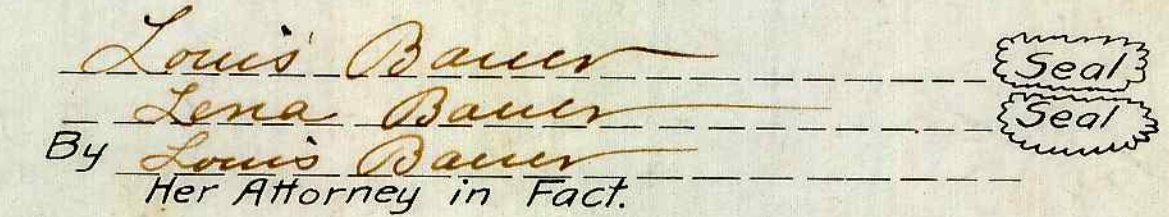 Louis Bauer Seal
Lena Bauer Seal
By Louis Bauer
Her Attorney in Fact.